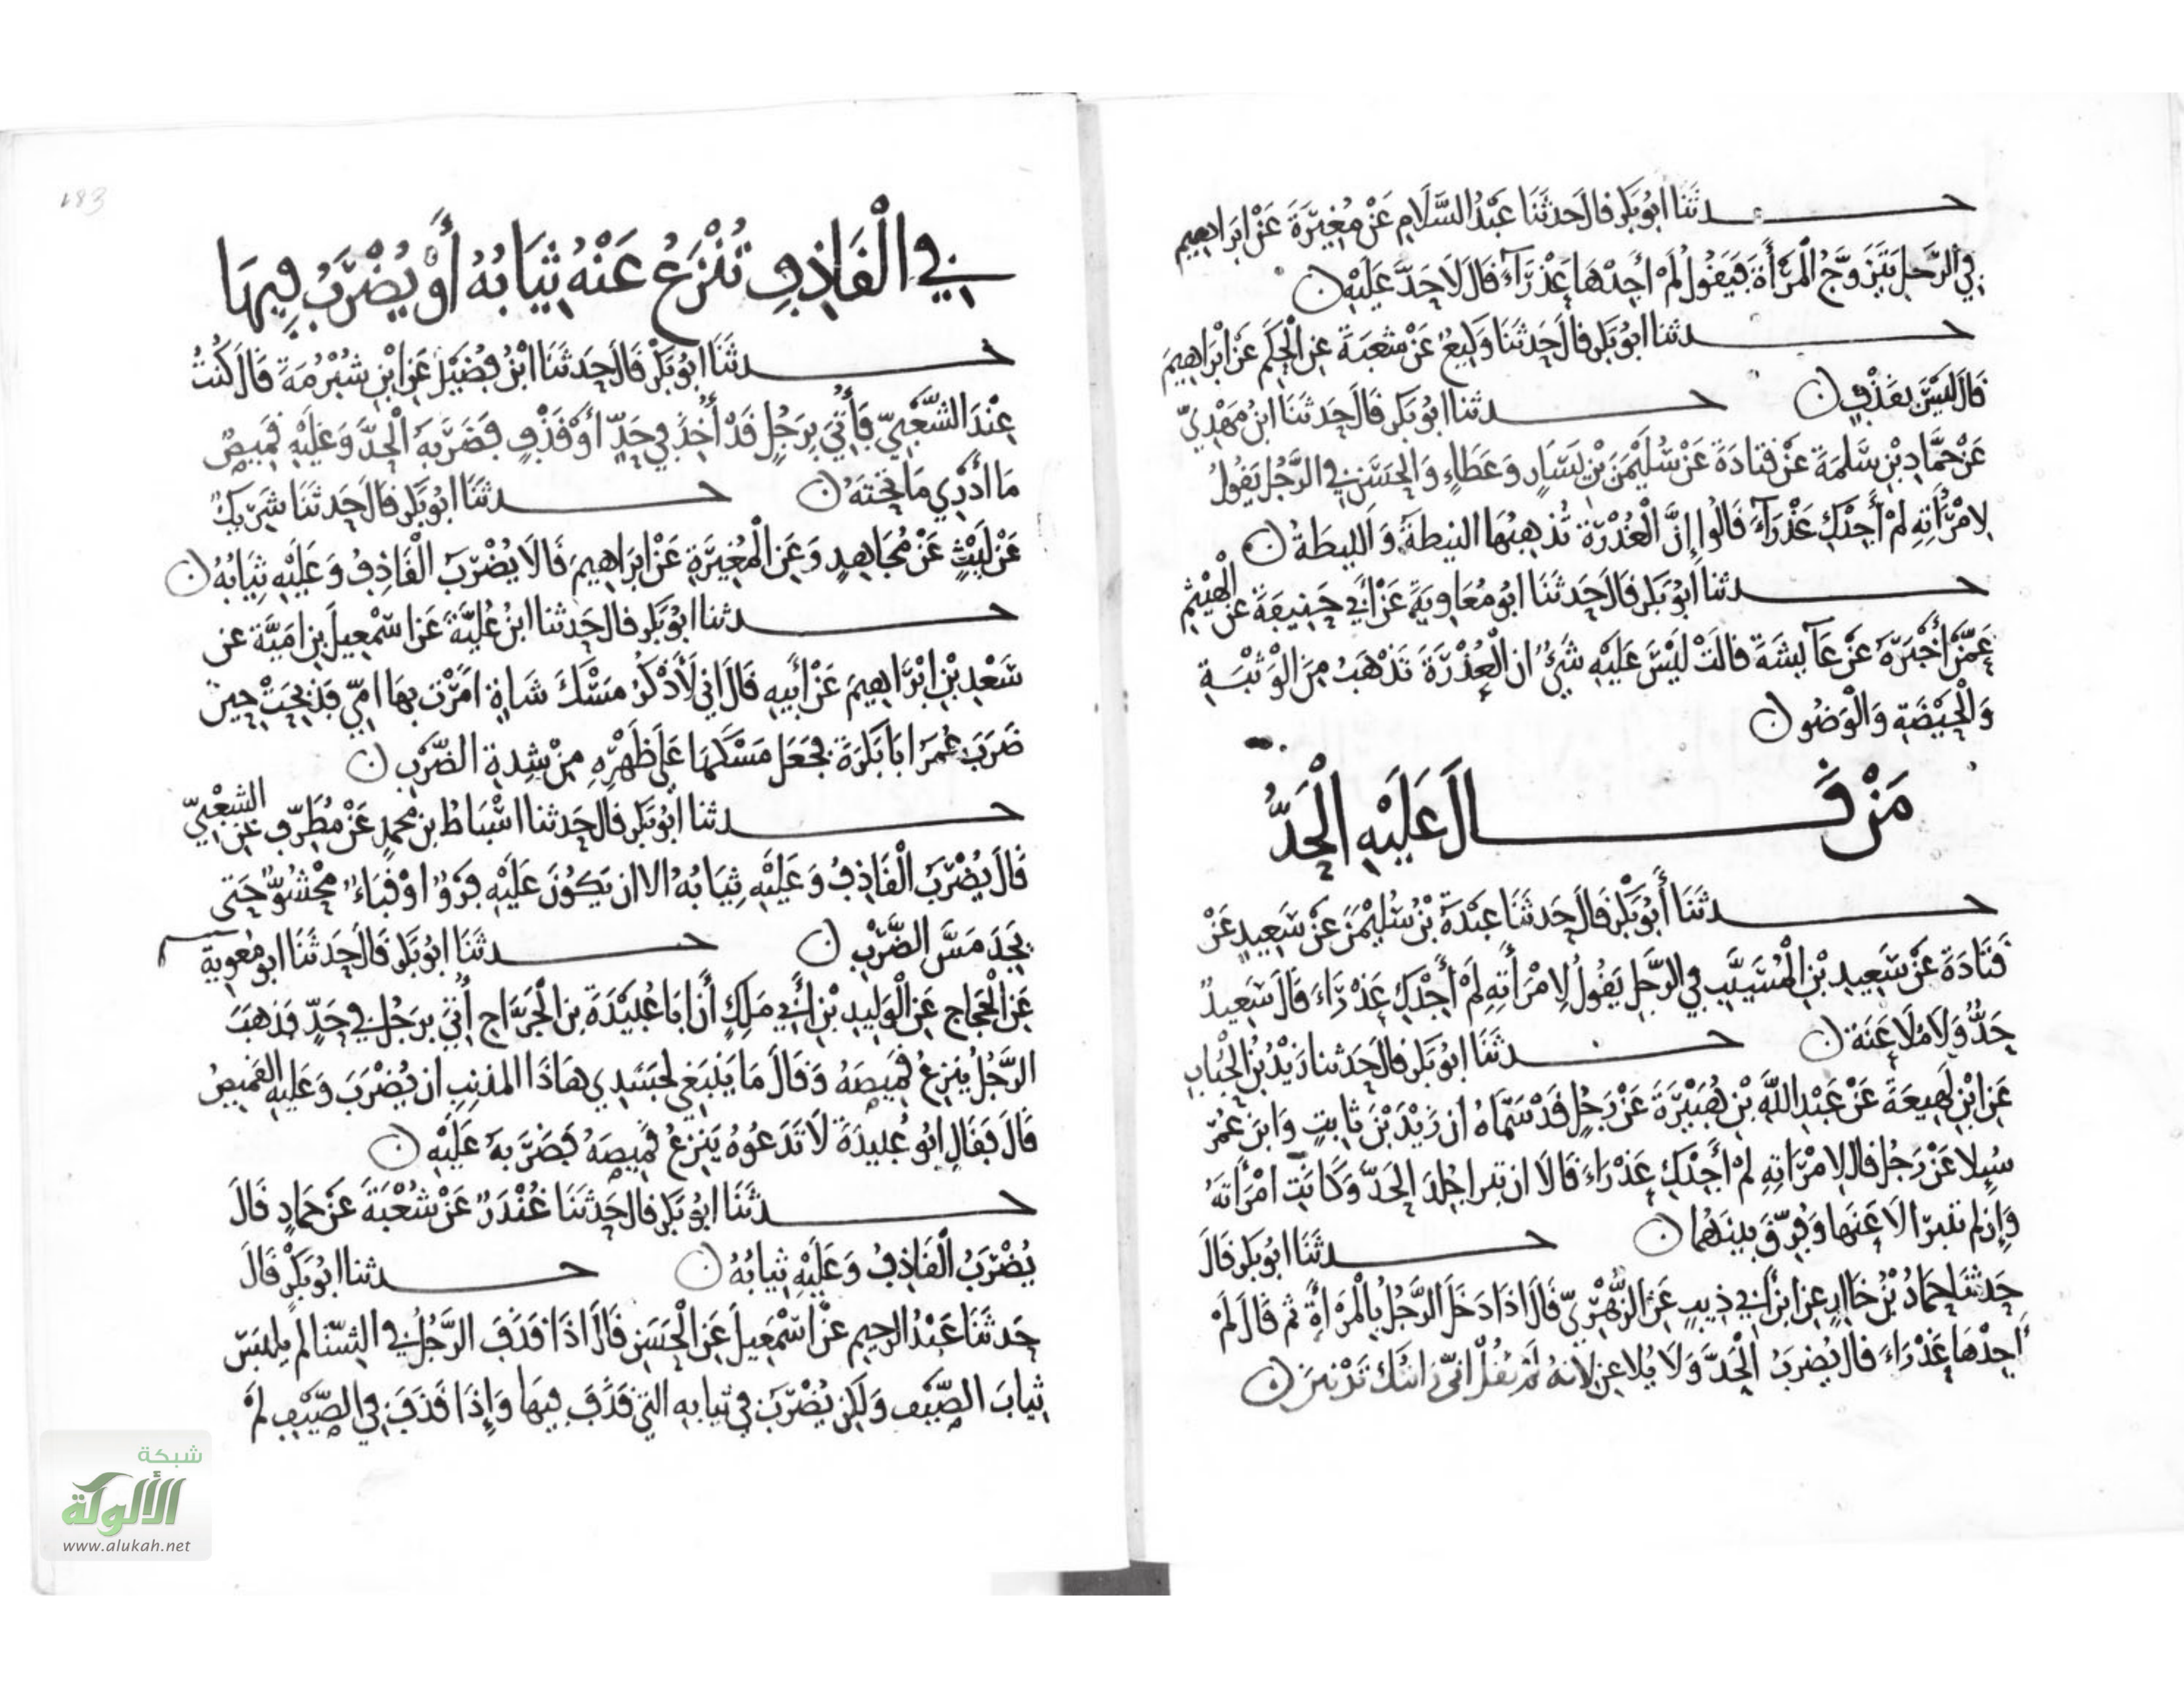 حدثنا ابو بكر قال حدثنا عبد السلام عن مغيرة عن ابراهيم
في الرجل يتزوج المرأة فيقول لم أجدها عذراء قال لا حد عليه
حدثنا ابو بكر قال حدثنا وكيع عن شعبة عن الحكم عن ابراهيم
قال ليس بقذف حدثنا ابو بكر قال حدثنا ابن مهدي
عن حماد بن سلمة عن قتادة عن سليمن بن يسار وعطاء والحسن في الرجل يقول
لامرأته لم أجدك عذراء قالوا إن العذرة تذهبها النيطة والليطة
حدثنا أبو بكر قال حدثنا ابو معاوية عن أبي حنيفة عن الهيثم
عمن أخبره عن عآيشة قالت ليس عليه شيء ان العذرة تذهب من الوثبة
والحيضة والوضو
من قال عليه الحد
حدثنا أبو بكر قال حدثنا عبدة بن سليمن عن سعيد عن
قتادة عن سعيد بن المسيب في الرجل يقول لامرأته لم أجدك عذراء قال سعيد
حد ولا ملاعنة حدثنا ابو بكر قال حدثنا زيد بن الحباب
عن ابن لهيعة عن عبد الله بن هبيرة عن رجل قد سماه ان زيد بن ثابت وابن عمر
سيلا عن رجل قال لامرأته لم أجدك عذراء قالا ان تبرا جلد الحد وكانت امرأته
وإن لم تبرا لاعنها وفرق بينهما حدثنا ابو بكر قال
حدثنا حماد بن خالد عن ابن أبي ذيب عن الزهري قال اذا دخل الرجل بالمرأة ثم قال لم
أجدها عذراء قال يضرب الحد ولا يلاعن لانه لم يقل اني رايتك تزنين
183
في القاذف تنزع عنه ثيابه أو يضرب فيها
حدثنا ابو بكر قال حدثنا ابن فضيل عن ابن شبرمة قال كنت
عند الشعبي فأتي برجل قد أخذ في حد أو قذف فضربه الحد وعليه قميص
ما أدري ما تحته حدثنا ابو بكر قال حدثنا شريك
عن ليث عن مجاهد وعن المغيرة عن ابراهيم قالا يضرب القاذف وعليه ثيابه
حدثنا ابو بكر قال حدثنا ابن علية عن اسمعيل بن امية عن
سعد بن ابراهيم عن أبيه قال اني لأذكر مسك شاة امرت بها امي فذبحت حين
ضرب عمر ابا بكرة فجعل مسكها على ظهره من شدة الضرب
حدثنا أبو بكر قال حدثنا اسباط بن محمد عن مطرف عن الشعبي
قال يضرب القاذف وعليه ثيابه الا ان يكون عليه فرو او قباء محشو حتى
يجد مس الضرب حدثنا ابو بكر قال حدثنا ابو معوية
عن الحجاج عن الوليد بن أبي ملك أن ابا عبيدة بن الجراح أتي برجل في حد فذهب
الرجل ينزع قميصه وقال ما ينبغي لجسدي هاذا المذنب ان يضرب وعليه القميص
قال فقال ابو عبيدة لا تدعوه ينزع قميصه فضربه عليه
حدثنا ابو بكر قال حدثنا غندر عن شعبة عن حماد قال
يضرب القاذف وعليه ثيابه حدثنا ابو بكر قال
حدثنا عبد الرحيم عن اسمعيل عن الحسن قال اذا قذف الرجل في الشتا لم يلبس
ثياب الصيف ولكن يضرب في ثيابه التي قذف فيها وإذا قذف في الصيف لم
شبكة
الألوكة
www.alukah.net